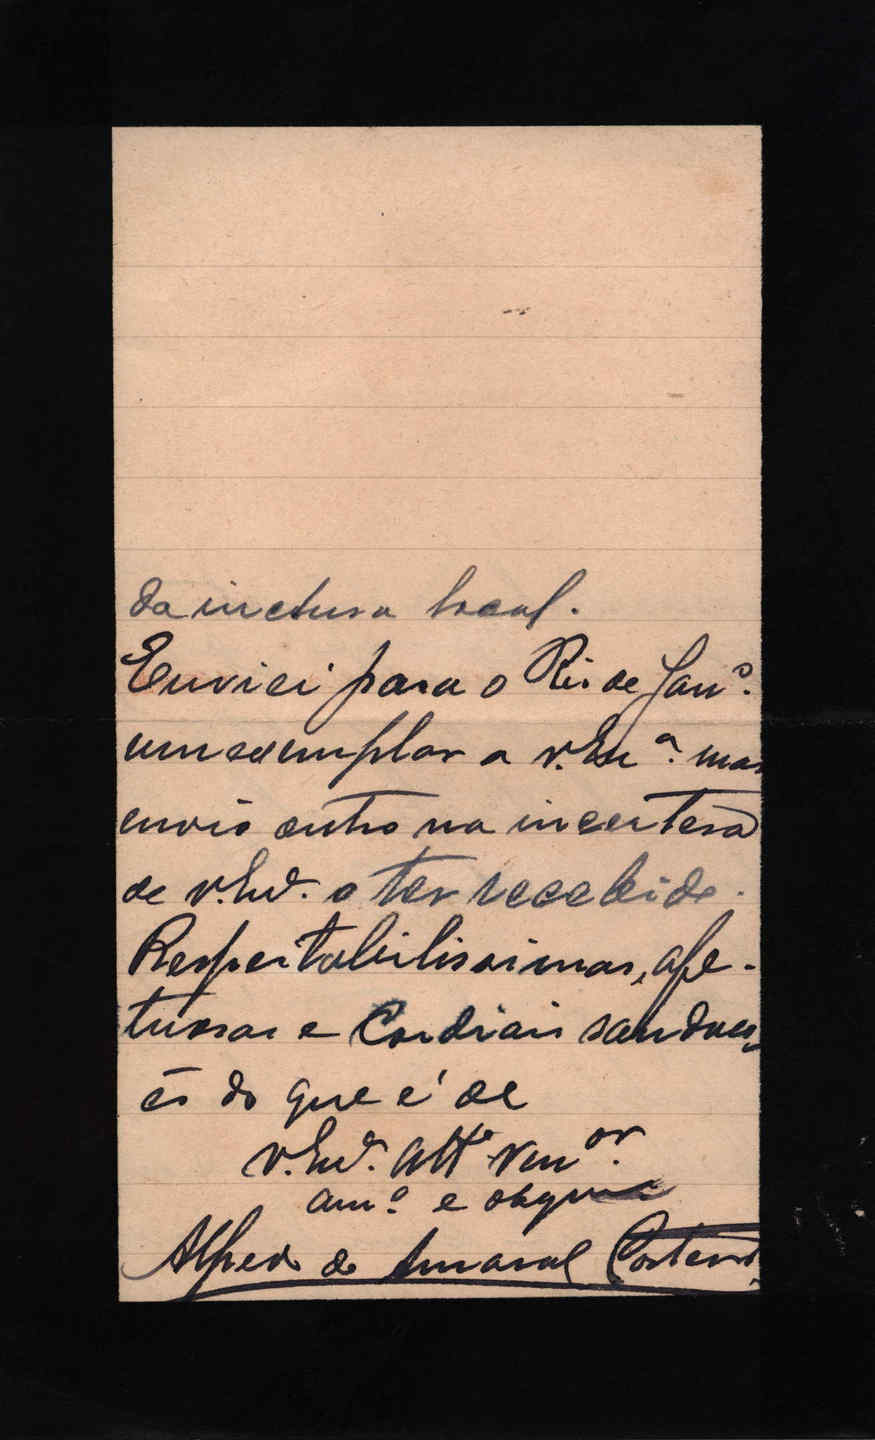 da incluso local.
Enviei para o Rio de Janº.
um exemplar a v. Exª. mas
envio outro na incertesa
de v. Exª. o ter recebido.
Respeitabilissimas, afe-
tuosas e Cordiais saudaçõ
es do que é de
v. Exª. Attº Venºr.
amº e obgº
Alfredo do Amaral